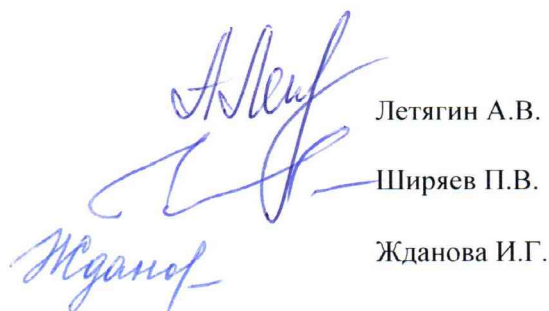 Летягин А.В.
Ширяев П.В.
Жданова И.Г.